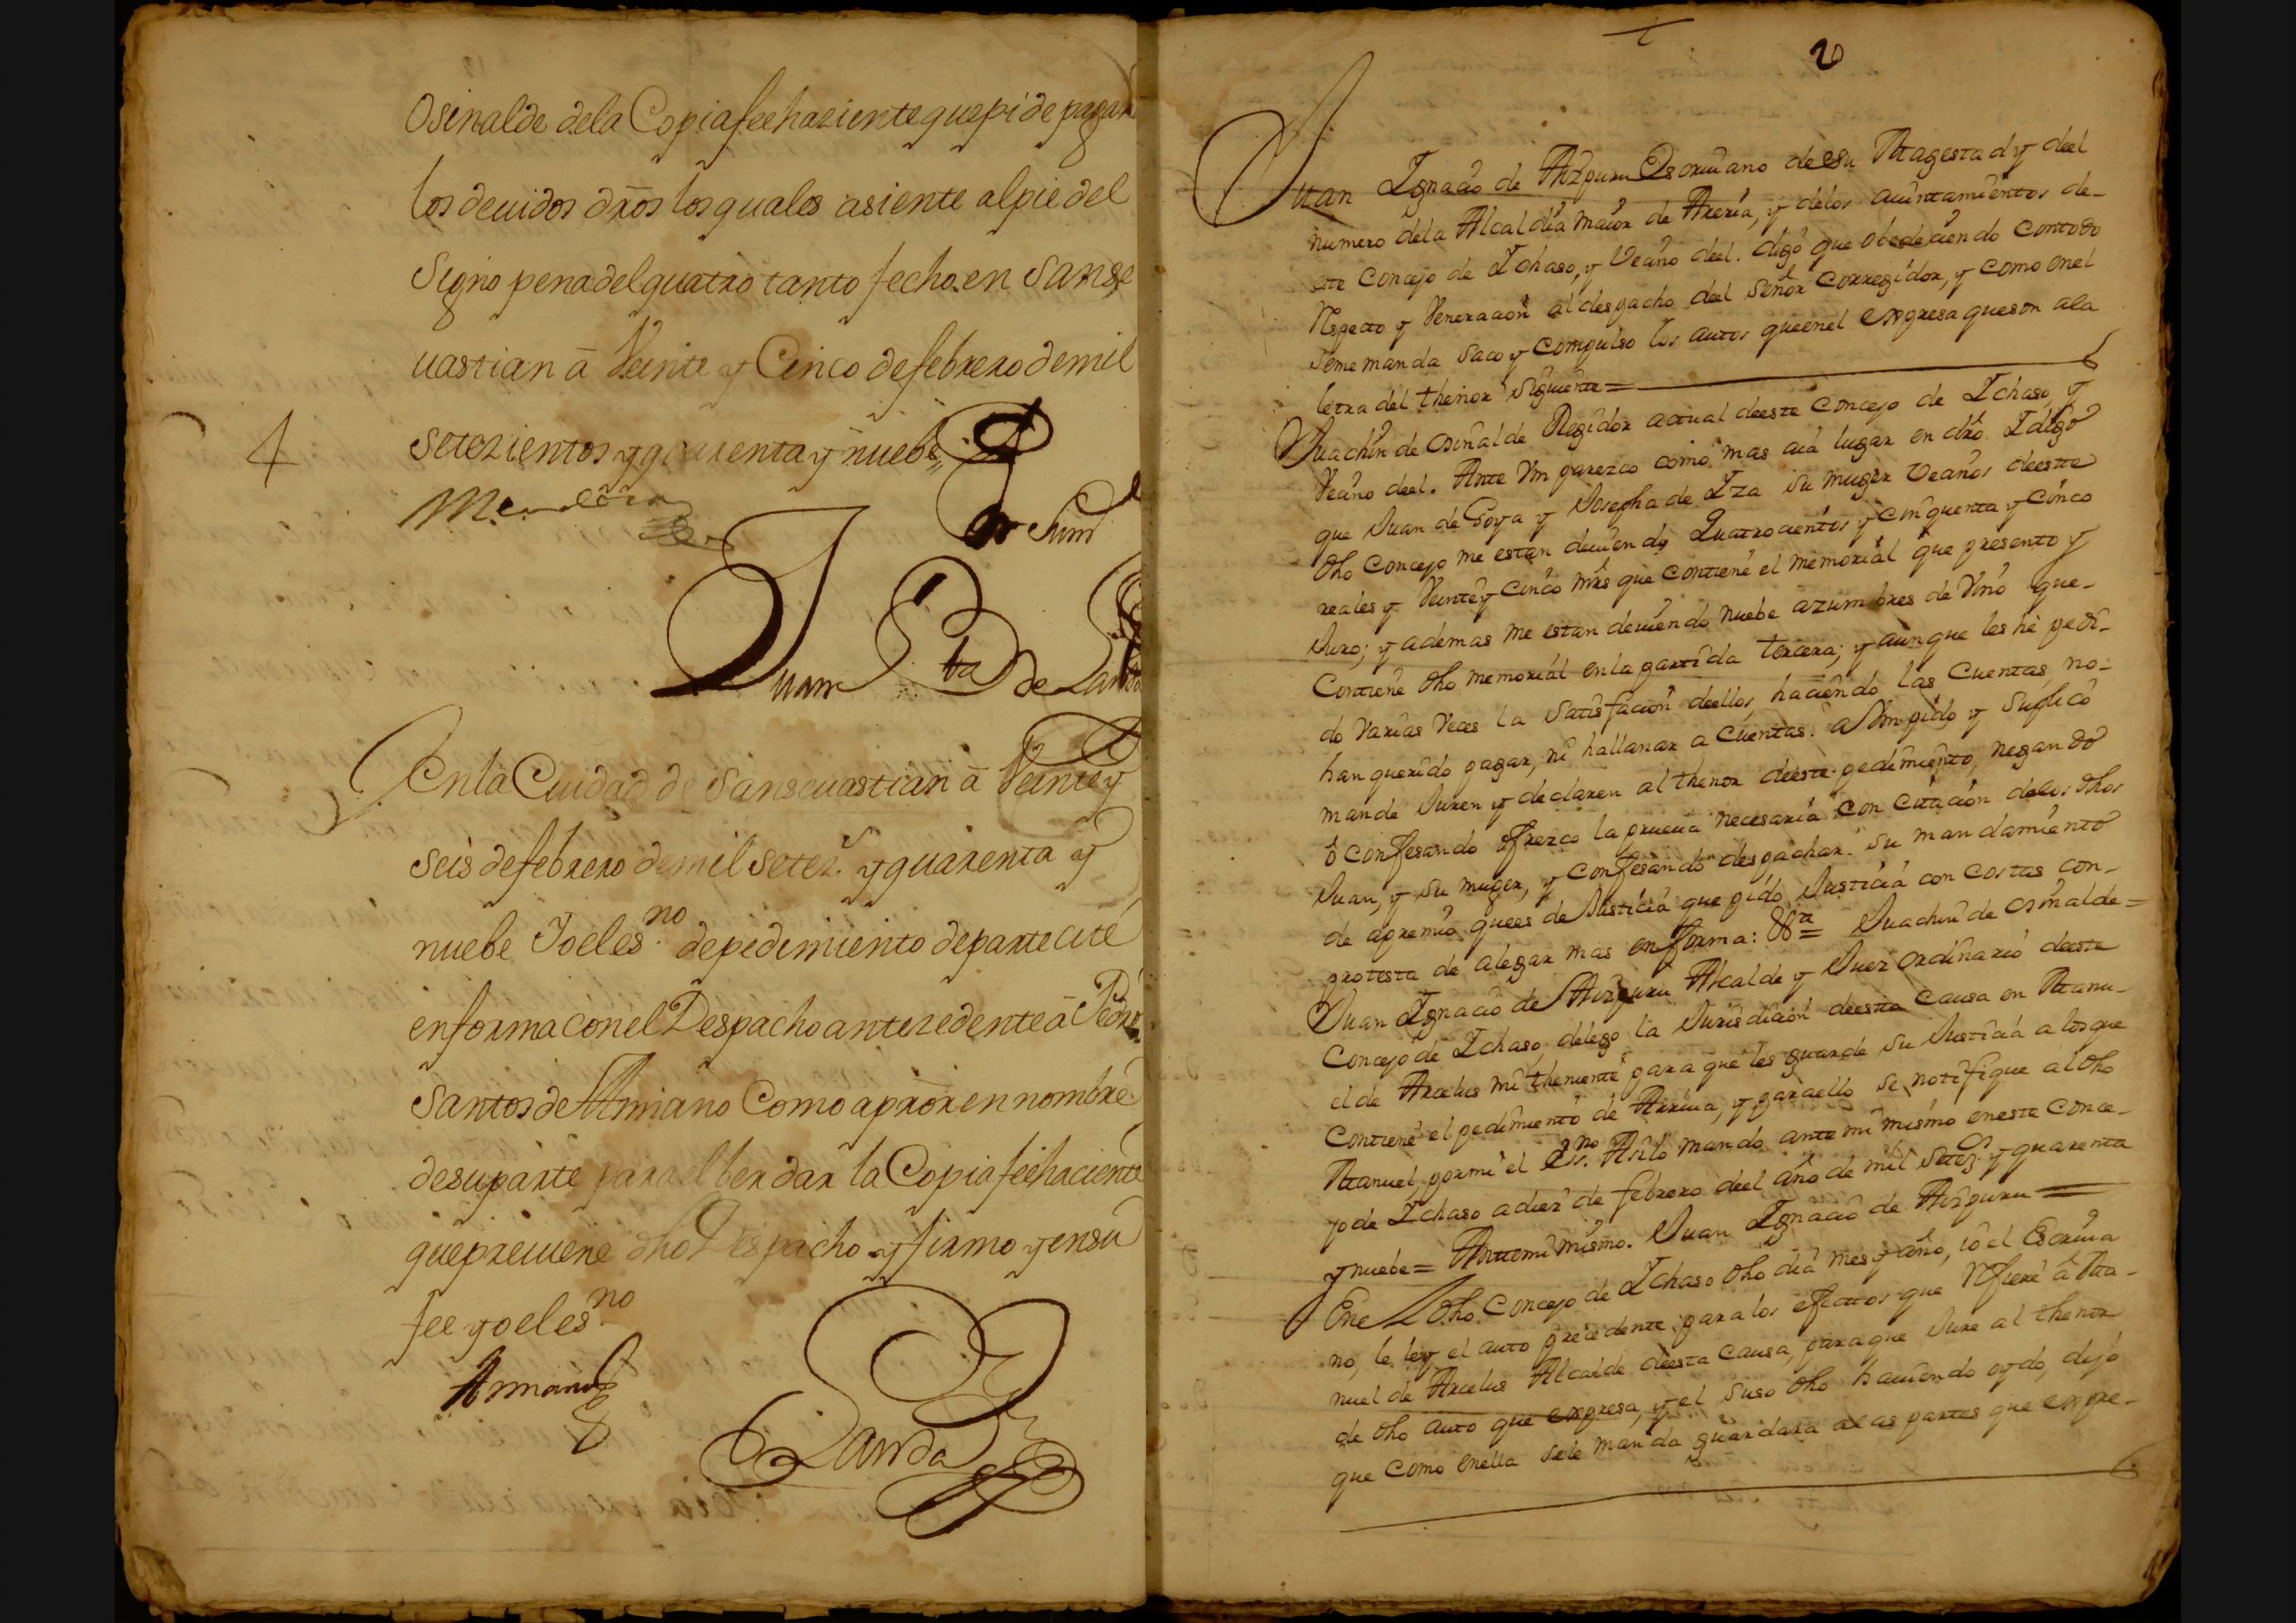 Osinalde dela Copia feehaziente que pide pagan
los deuidos dros los quales asiente al pie del
Signo pena del quatro tanto fecho en Sanse
uastian â Veinte y Cinco de febrero de mil
setezientos y quarenta y nuebe,,
4
Por Sum
Juan Bta de Landa
En la Ciudad de Sanseuastian â Veinte y
seis de febrero de mil setezs y quarenta y
nuebe Yo el esno de pedimiento de parte cité
en forma con el Despacho antezedente â Pedro
Santos de Amiano Como aproor en nombre
de su parte para el ber dar la Copia feehaciente
que preuiene dho Despacho y firmo y en su
fee yo el esno
Amiano
Landa
20
Juan Ignacio de Aizpuru Escriuano de su Magestad y deel
numero dela Alcaldia maior de Areria, y delos aiuntamientos de-
este Concejo de Ichaso, y Vecino deel. digo que obedeciendo con todo
Respecto y Veneracion al despacho deel señor Corregidor, y como en el
seme manda saco y Compulso los autos queenel expresa que son ala
letra del thenor siguiente=
Juachin de osinalde Regidor actual deeste Concejo de Ichaso, y
Vecino deel. Ante Vm parezco como mas aia lugar en dro I digo
que Juan de Goya y Josepha de Iza su muger Vecinos deeste
dho Concejo me estan deuiendo Quatrocientos y cinquenta y cinco
reales y Veinte y Cinco mrs que Contiene el memorial que presento y
Juro; y ademas me estan deuiendo nuebe azumbres de Vino que-
Contiene dho memorial en la partida tercera; y aunque les hè pedi-
do Varias Veces la satisfacion deellos, haciendo las Cuentas, no-
han querido pagar, ni hallanar a Cuentas. a Vm pido y suplico
mande Juren y declaren al thenor deeste pedimiento, negando
ô confesando ofrezco la prueua necesaria con citacion delos dhos
Juan, y su muger, y confesando despachar su mandamiento
de apremio quees de Justicia que pido Justicia con costas con-
protesta de alegar mas en forma: &ra= Juachin de osinalde=
Juan Ignacio de Aizpuru Alcalde y Juez ordinario deeste
Concejo de Ichaso, delego la Jurisdicion deesta Causa en Manu-
el de Arcelus mi theniente para que les guarde su Justicia a los que
Contiene el pedimiento de Arriua, y para ello se notifique al dho
Manuel, por mi el Esno. Asi lo mando ante mi mismo en este Conce-
jo de Ichaso a diez de febrero deel año de mil setezs y quarenta
y nuebe= Antemi mismo. Juan Ignacio de Aizpuru=
Enel dho Concejo de Ichaso dho dia mes y año, io el Escriua
no, le ley el auto precedente para los efectos que Refiere â Ma-
nuel de Arcelus Alcalde deesta Causa, para que Jure al thenor
de dho auto que expresa, y el suso dho hauiendo oydo, dijo
que como en ella se le manda guardara alas partes que expre-